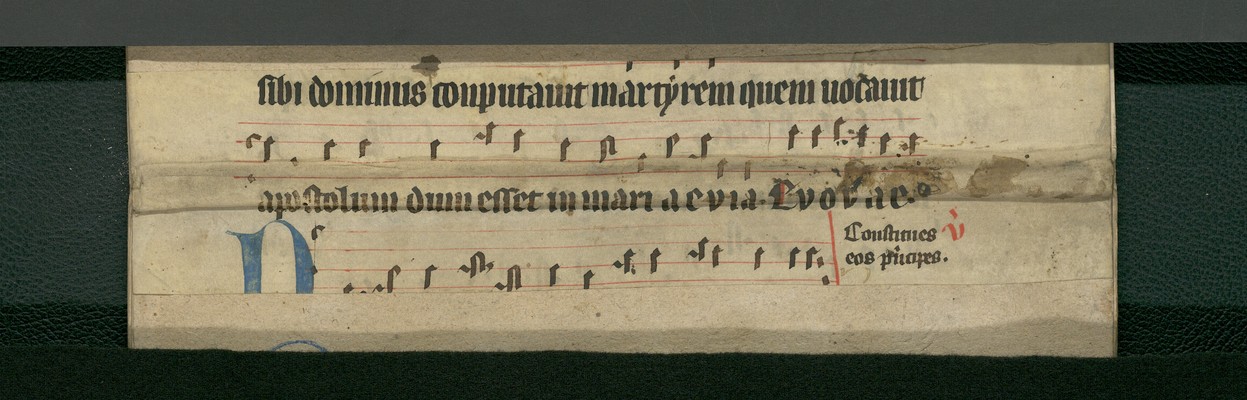 sibi dominus conputauit martÿrem quem uocauit
apostolum dum esset in mari aevia. Evovae.
N
Constitues v̇
eos p̍ncipes.